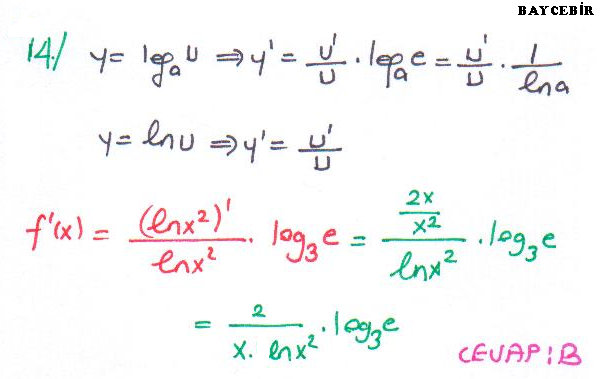 BAYCEBİR
14./ y = logₐU ⇒ y' = U'/U · logₐe = U'/U · 1/lna
y = lnU ⇒ y' = U'/U
f'(x) = (lnx²)'/lnx² · log₃e = (2x/x²)/lnx² · log₃e
= 2/(x. lnx²) · log₃e
CEVAP: B